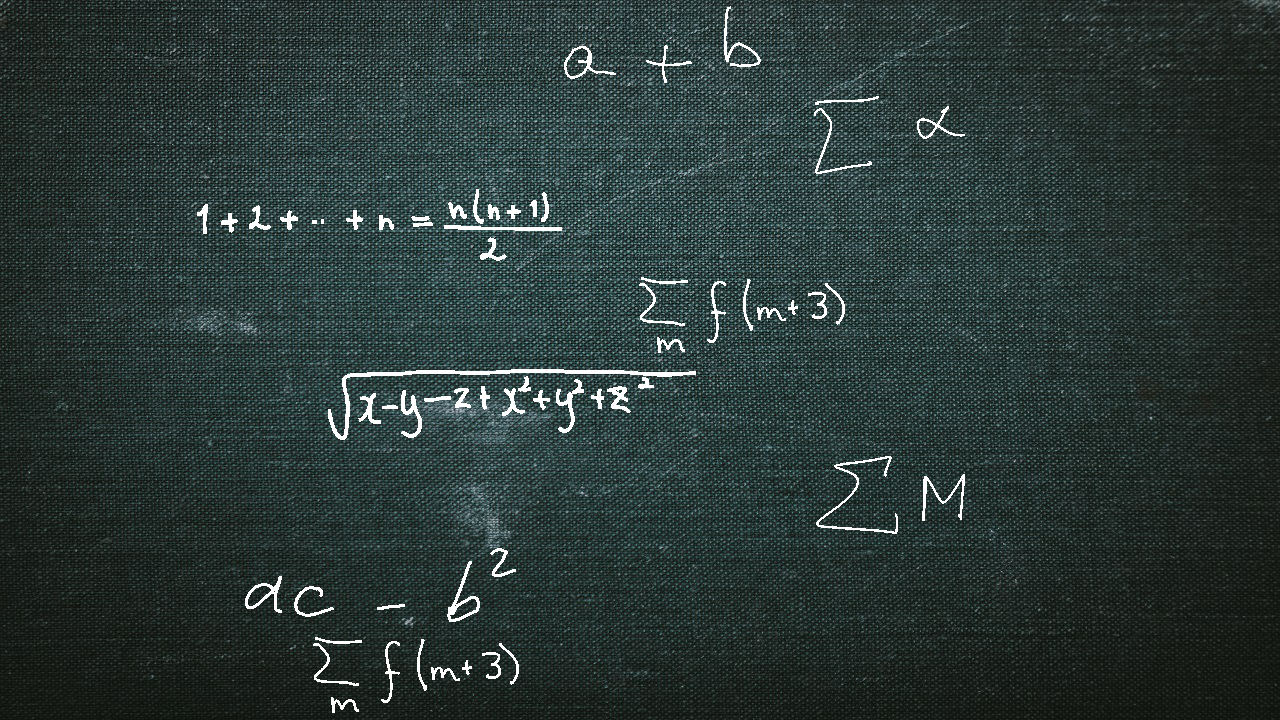 a + b
∑ α
1 + 2 + ·· + n = n(n+1)/2
∑_m f(m+3)
√(x-y-z+x²+y²+z²)
∑ M
ac - b²
∑_m f(m+3)